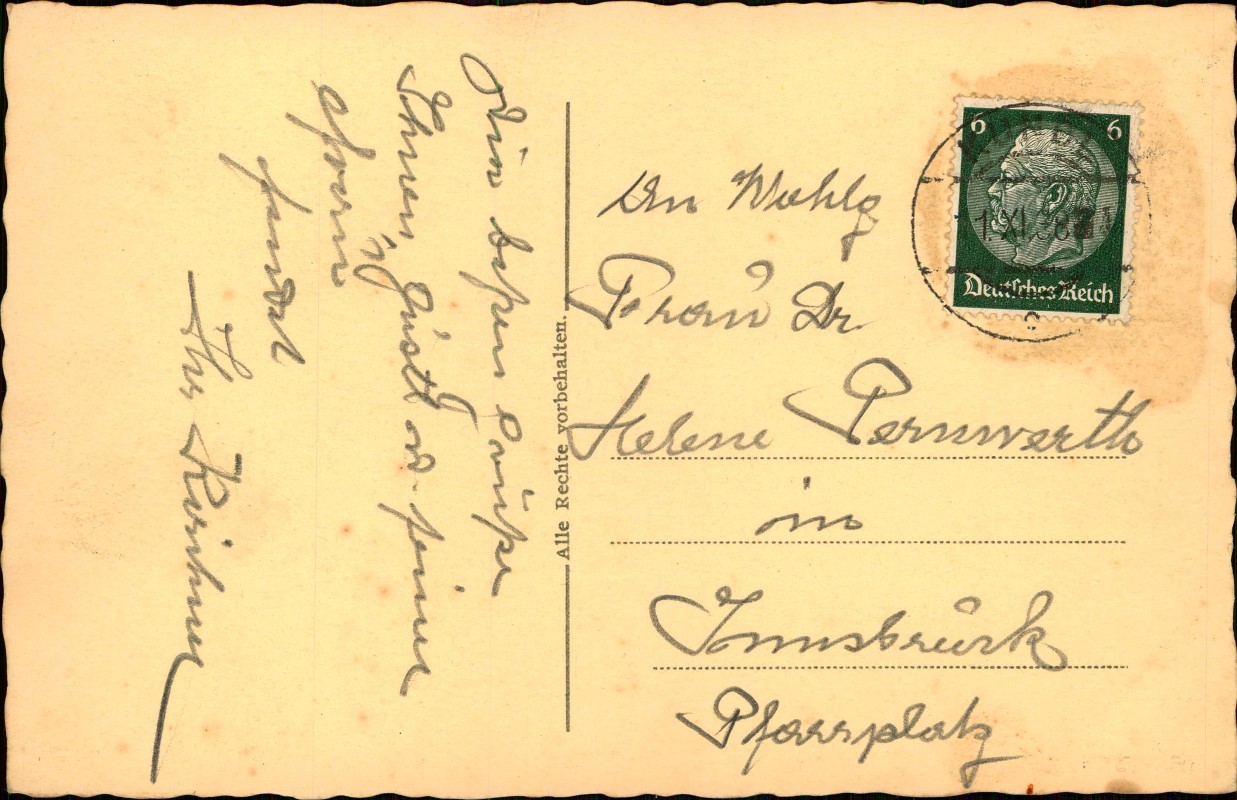 Die besten Grüße
Ihnen, Gustl u. seiner
sendet
Ihr
Alle Rechte vorbehalten.
6 6
1.XI.38
Deutsches Reich
An Wohlg
Frau Dr.
Helene Pernwerth
in
Innsbruck
Pfarrplatz